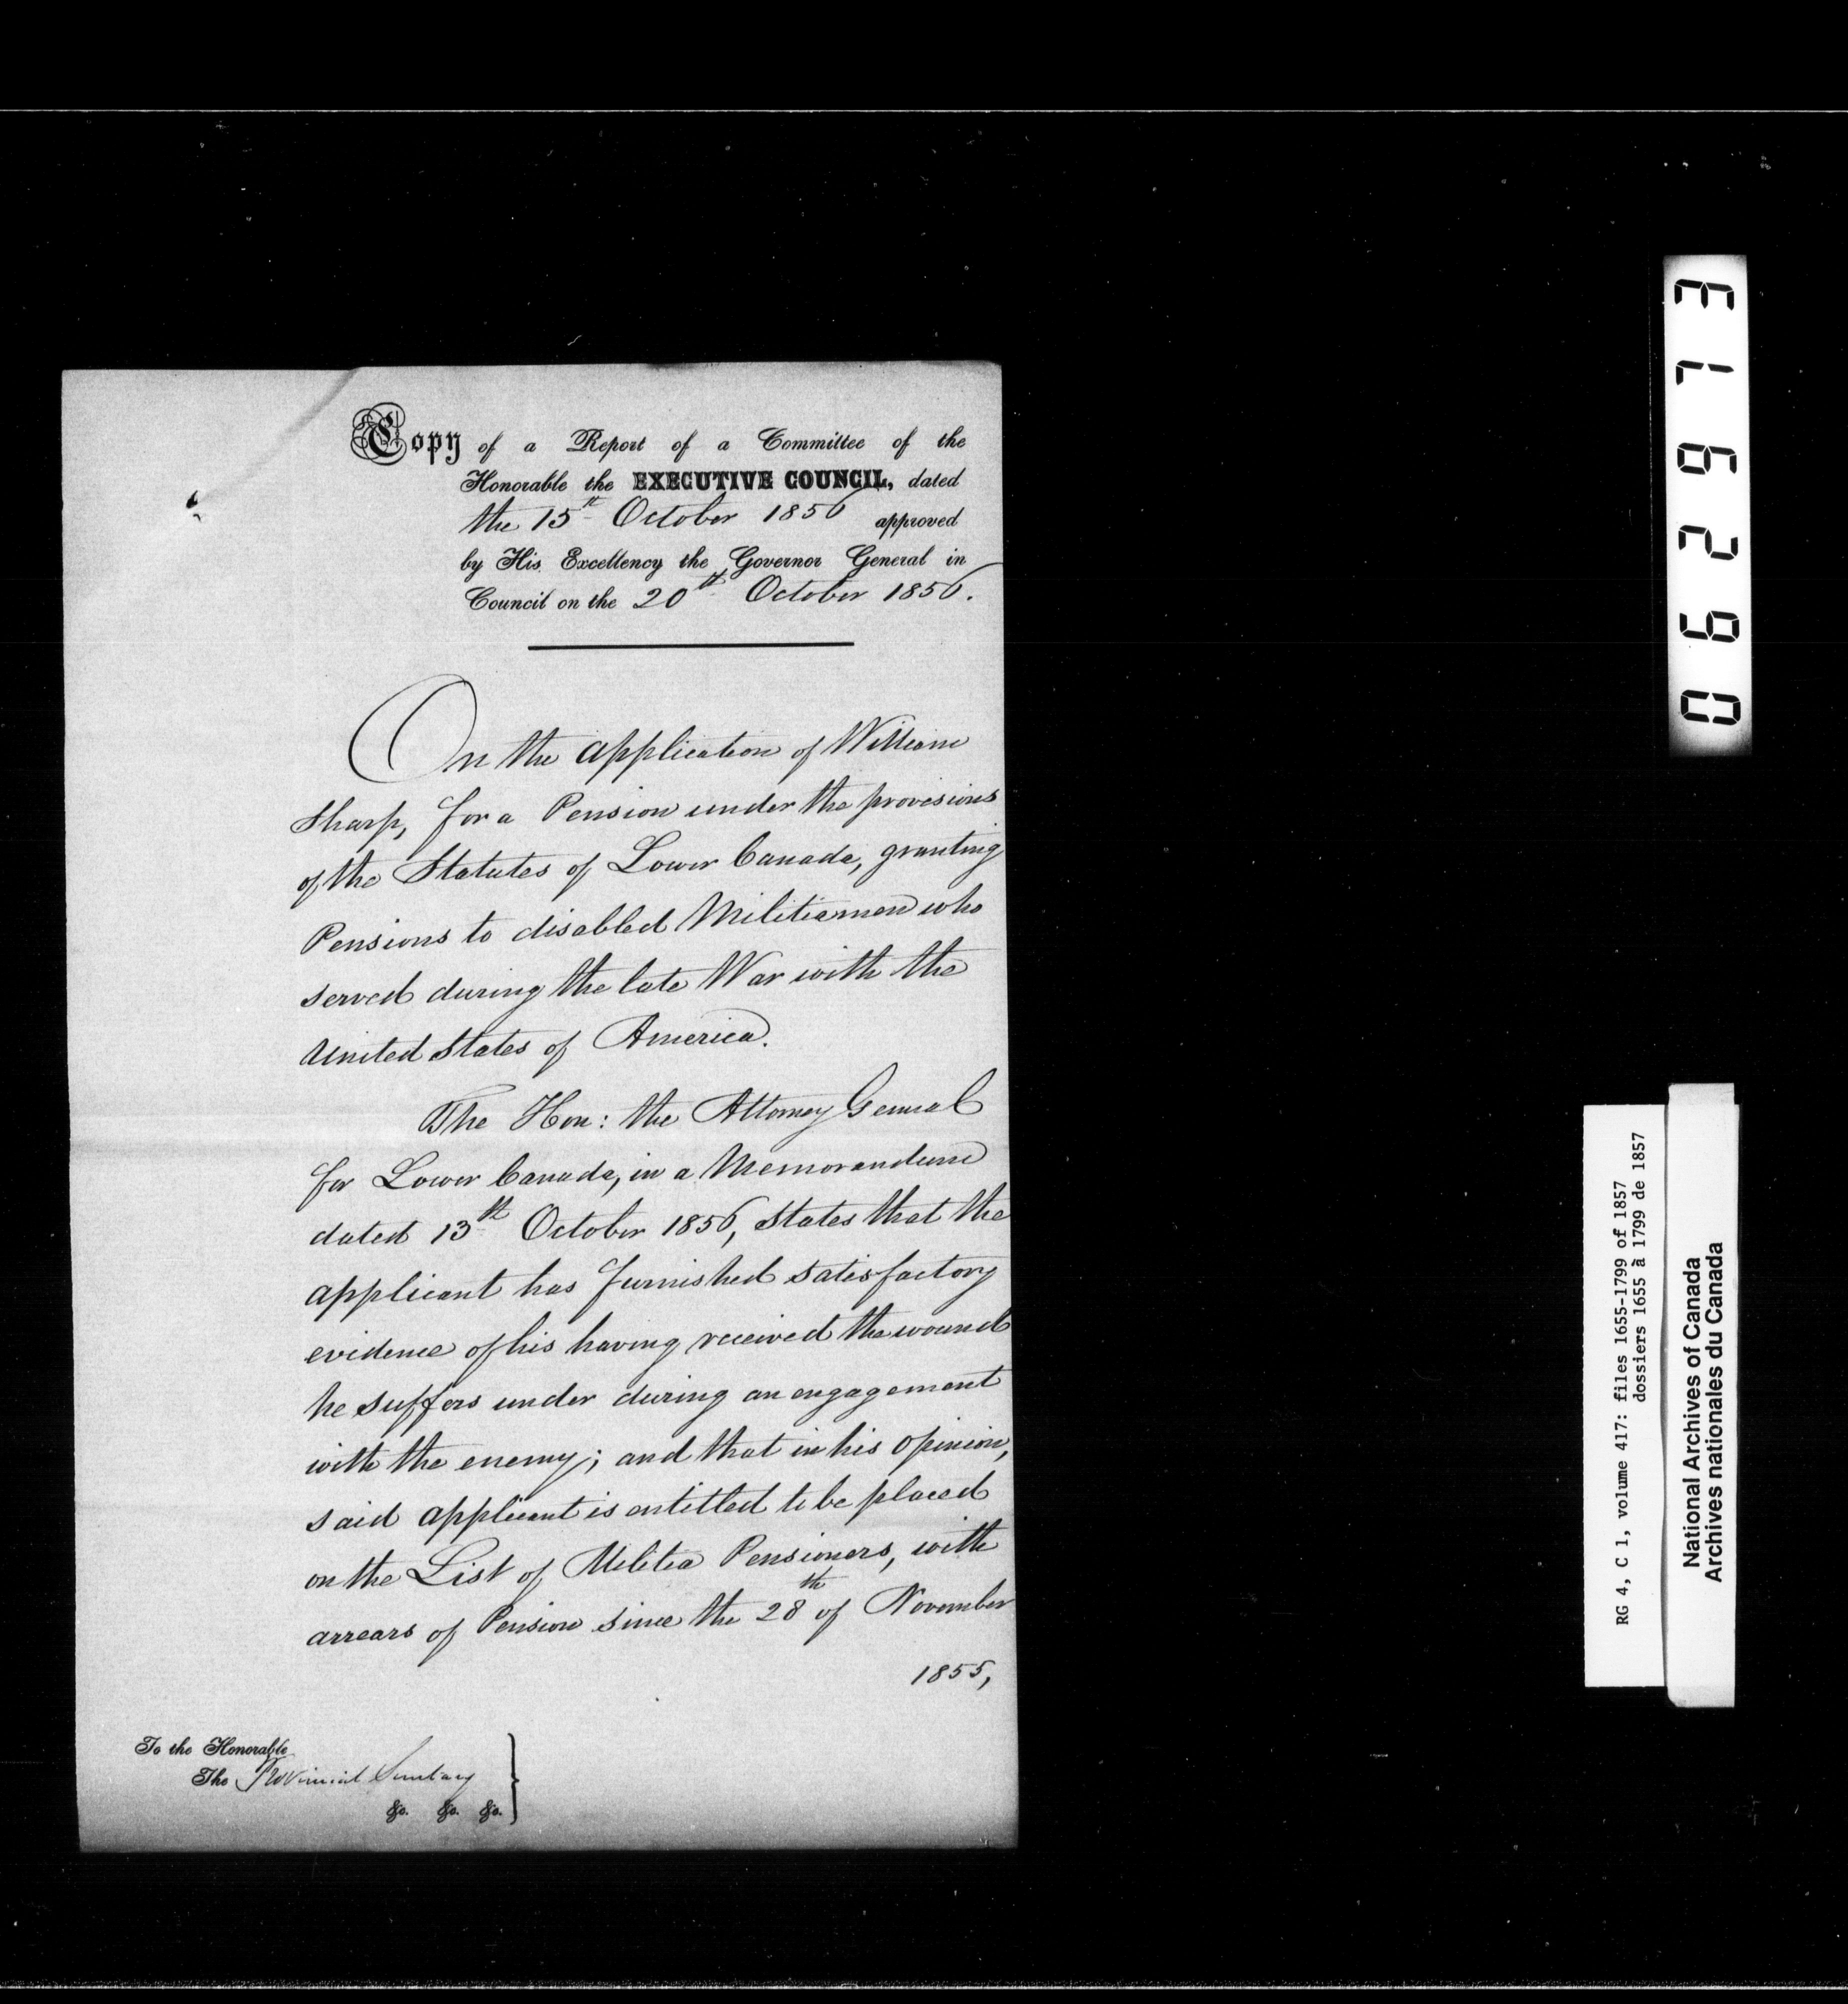 Copy of a Report of a Committee of the
Honorable the EXECUTIVE COUNCIL, dated
the 15th October 1856 approved
by His Excellency the Governor General in
Council on the 20th October 1856.
On the application of William
Sharp, for a Pension under the provisions
of the Statutes of Lower Canada, granting
Pensions to disabled Militiamen who
served during the late War with the
United States of America.
The Hon: the Attorney General
for Lower Canada, in a Memorandum
dated 13th October 1856, states that the
applicant has furnished satisfactory
evidence of his having received the wound
he suffers under during an engagement
with the enemy; and that in his opinion,
said applicant is entitled to be placed
on the List of Militia Pensioners, with
arrears of Pension since the 28th of November
1855,
To the Honorable
The Provincial Secretary
&c. &c. &c.
062973
RG 4, C 1, volume 417: files 1655-1799 of 1857
dossiers 1655 à 1799 de 1857
National Archives of Canada
Archives nationales du Canada